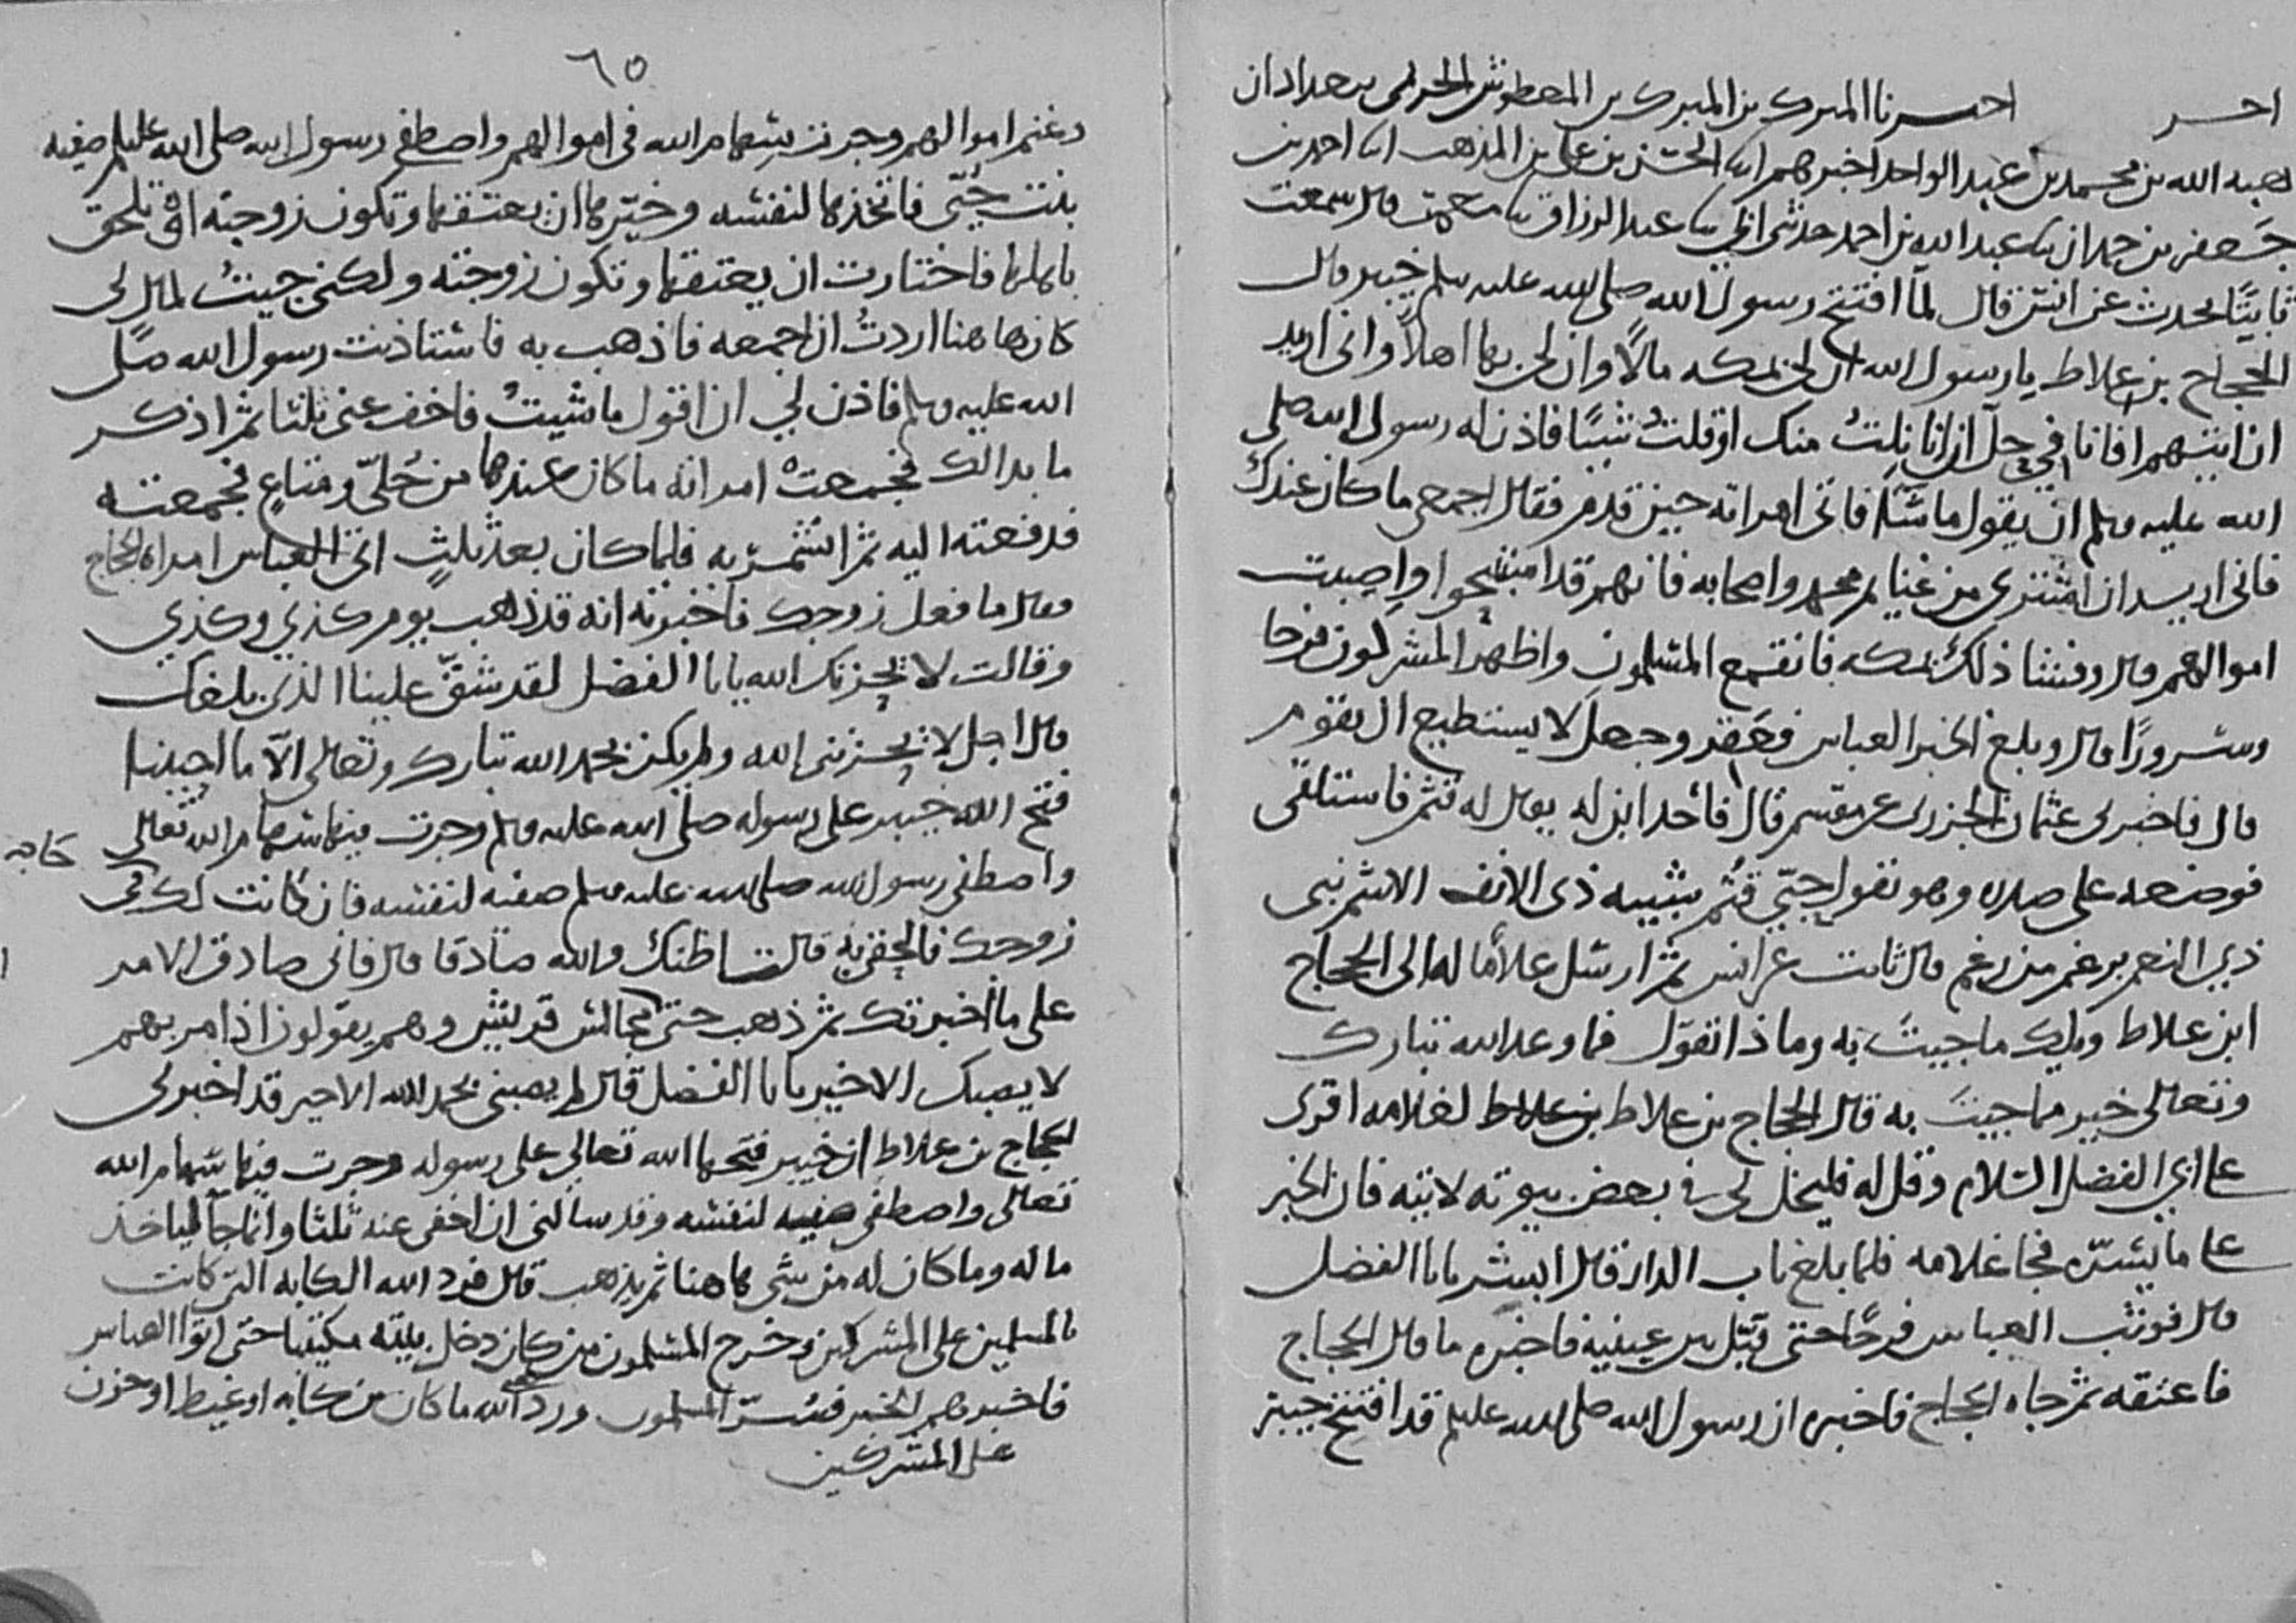 احـــر اخبرنا المبرك بن المبرك بن المعطوش الحريمي ببغداد ان
هبه الله بن محمد بن عبد الواحد اخبرهم ابنا الحسن بن علي بن المذهب ابنا احمد بن
جعفر بن حمدان ثنا عبد الله بن احمد حدثني ابي ثنا عبد الرزاق ثنا معمر قال سمعت
ثابتًا يحدث عن انس قال لمّا افتتح رسول الله صلى الله عليه وسلم خيبر قال
الحجاج بن علاط يا رسول الله ان لي بمكه مالًا وان لي بها اهلًا واني اريد
ان اتيهم افانا في حلّ ان انا نلتُ منك او قلتُ شيئًا فاذن له رسول الله صلى
الله عليه وسلم ان يقول ما شآ فاتى امراته حين قدم فقال اجمعي ما كان عندك
فاني اريد ان اشتري من غنايم محمد واصحابه فانهم قد استبيحوا واصيبت
اموالهم قال وفشا ذلك بمكه فانقمع المسلمون واظهر المشركون فرحا
وسرورًا قال وبلغ الخبر العباس فعقر وجعل لا يستطيع ان يقوم
قال فاخبرني عثمان الجزري عن مقسم قال فاخذ ابن له يقال له قثم فاستلقى
فوضعه على صدره وهو يقول حبّي قثم شبيه ذي الانف الاشم نبي
ذي النعم برغم من رغم قال ثابت عن انس ثم ارسل غلامًا له الى الحجاج
ابن علاط ويلك ما جيتَ به وماذا تقول فما وعد الله تبارك
وتعالى خير مما جيتَ به قال الحجاج بن علاط بن علاط لغلامه اقرى
على ابي الفضل السّلام وقل له فليخل لي في بعض بيوته لاتيه فان الخبر
على ما يسرّه فجا غلامه فلما بلغ باب الدار قال ابشر يابا الفضل
قال فوثب العباس فرحًا حتى قبّل بين عينيه فاخبره ما قال الحجاج
فاعتقه ثم جاه الحجاج فاخبره ان رسول الله صلى الله عليه وسلم قد افتتح خيبر
٦٥
وغنم اموالهم وجرت سهام الله في اموالهم واصطفى رسول الله صلى الله عليه وسلم صفيه
بنت حُيّي فاتخذها لنفسه وخيّرها ان يعتقها وتكون زوجته او تلحق
باهلها فاختارت ان يعتقها وتكون زوجته ولكني جيتُ لمال لي
كان هاهنا اردتُ ان اجمعه فاذهب به فاستاذنت رسول الله صلى
الله عليه وسلم فاذن لي ان اقول ما شيتُ فاخف عني ثلثا ثم اذكر
ما بدا لك فجمعتْ امراته ما كان عندها من حُليّ ومتاعٍ فجمعته
فدفعته اليه ثم انشمرّ به فلما كان بعد ثلثٍ اتى العباس امراة الحجاج
فقال ما فعل زوجك فاخبرته انه قد ذهب يوم كذي وكذي
وقالت لا يحزنك الله يابا الفضل لقد شقّ علينا الذي بلغك
قال اجل لا يحزنني الله ولم يكن بحمد الله تبارك وتعالى الّا ما احببنا
فتح الله خيبر على رسوله صلى الله عليه وسلم وجرت فيها سهام الله تعالى
واصطفى رسول الله صلى الله عليه وسلم صفيه لنفسه فان كانت لك في حاجه
زوجك فالحقي به قالت اظنك والله صادقا قال فاني صادق الامر
على ما اخبرتك ثم ذهب حتى مجالس قريش وهم يقولون اذا مر بهم
لا يصبك الا خير يابا الفضل قال لم يصبني بحمد الله الا خير قد اخبرني
الحجاج بن علاط ان خيبر فتحها الله تعالى على رسوله وجرت فيها سهام الله
تعالى واصطفى صفيه لنفسه وقد سالني ان اخفي عنه ثلثا وانما جآ لياخذ
ماله وما كان له من شي هاهنا ثم يذهب قال فرد الله الكابه التي كانت
بالمسلمين على المشركين وخرج المسلمون من كان دخل بيته مكتئبا حتى اتوا العباس
فاخبرهم الخبر فسُرّ المسلمون وردّ الله ما كان من كابه او غيظ او حزن
على المشركين